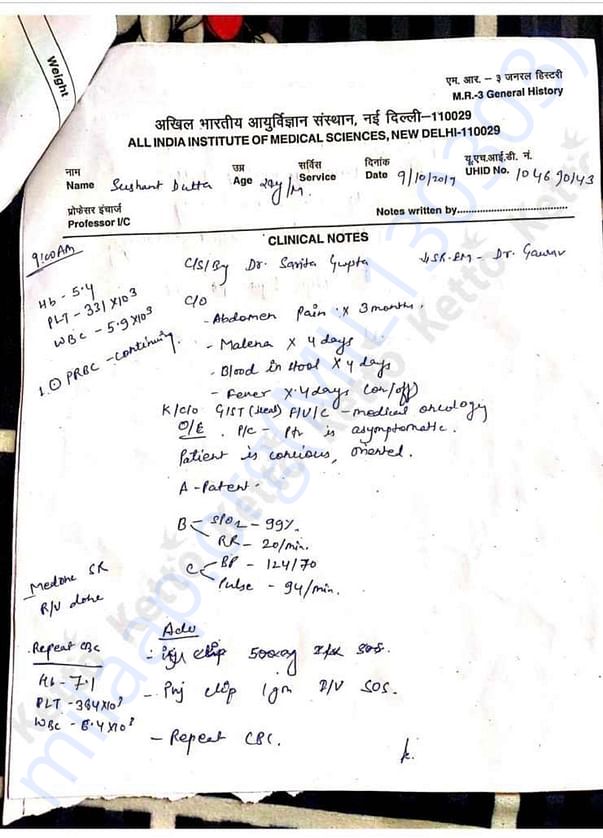 Weight
एम. आर. – ३ जनरल हिस्टरी
M.R.-3 General History
अखिल भारतीय आयुर्विज्ञान संस्थान, नई दिल्ली–110029
ALL INDIA INSTITUTE OF MEDICAL SCIENCES, NEW DELHI-110029
नाम उम्र सर्विस दिनांक यू.एच.आई.डी. नं.
Name Sushant Dutta Age /M Service Date 9/10/2019 UHID No. 104690143
प्रोफेसर इंचार्ज
Professor I/C Notes written by
CLINICAL NOTES
9:00AM
C/S/By Dr. Sarita Gupta SR-EM - Dr. Gaurav
Hb - 5.4
PLT - 331 X10³
WBC - 5.9 X10³
1.0 PRBC - continuing.
C/O
- Abdomen Pain X 3 months.
- Malena X 4 days
- Blood in stool X 4 days
- Fever X 4 days (on/off)
K/C/O GIST (ileal) F/U/C - medical oncology
O/E . P/C - Pt is asymptomatic.
Patient is concious, oriented.
A - Patent -
B SPO2 - 99%.
RR - 20/min.
C BP - 124/70
Pulse - 94/min.
Medone SR
R/V done
Adv
Repeat CBC
Hb - 7.1
PLT - 384 X10³
WBC - 8.4 X10³
- 500mg SOS.
- Inj 1gm I/V SOS.
- Repeat CBC.
Ketto